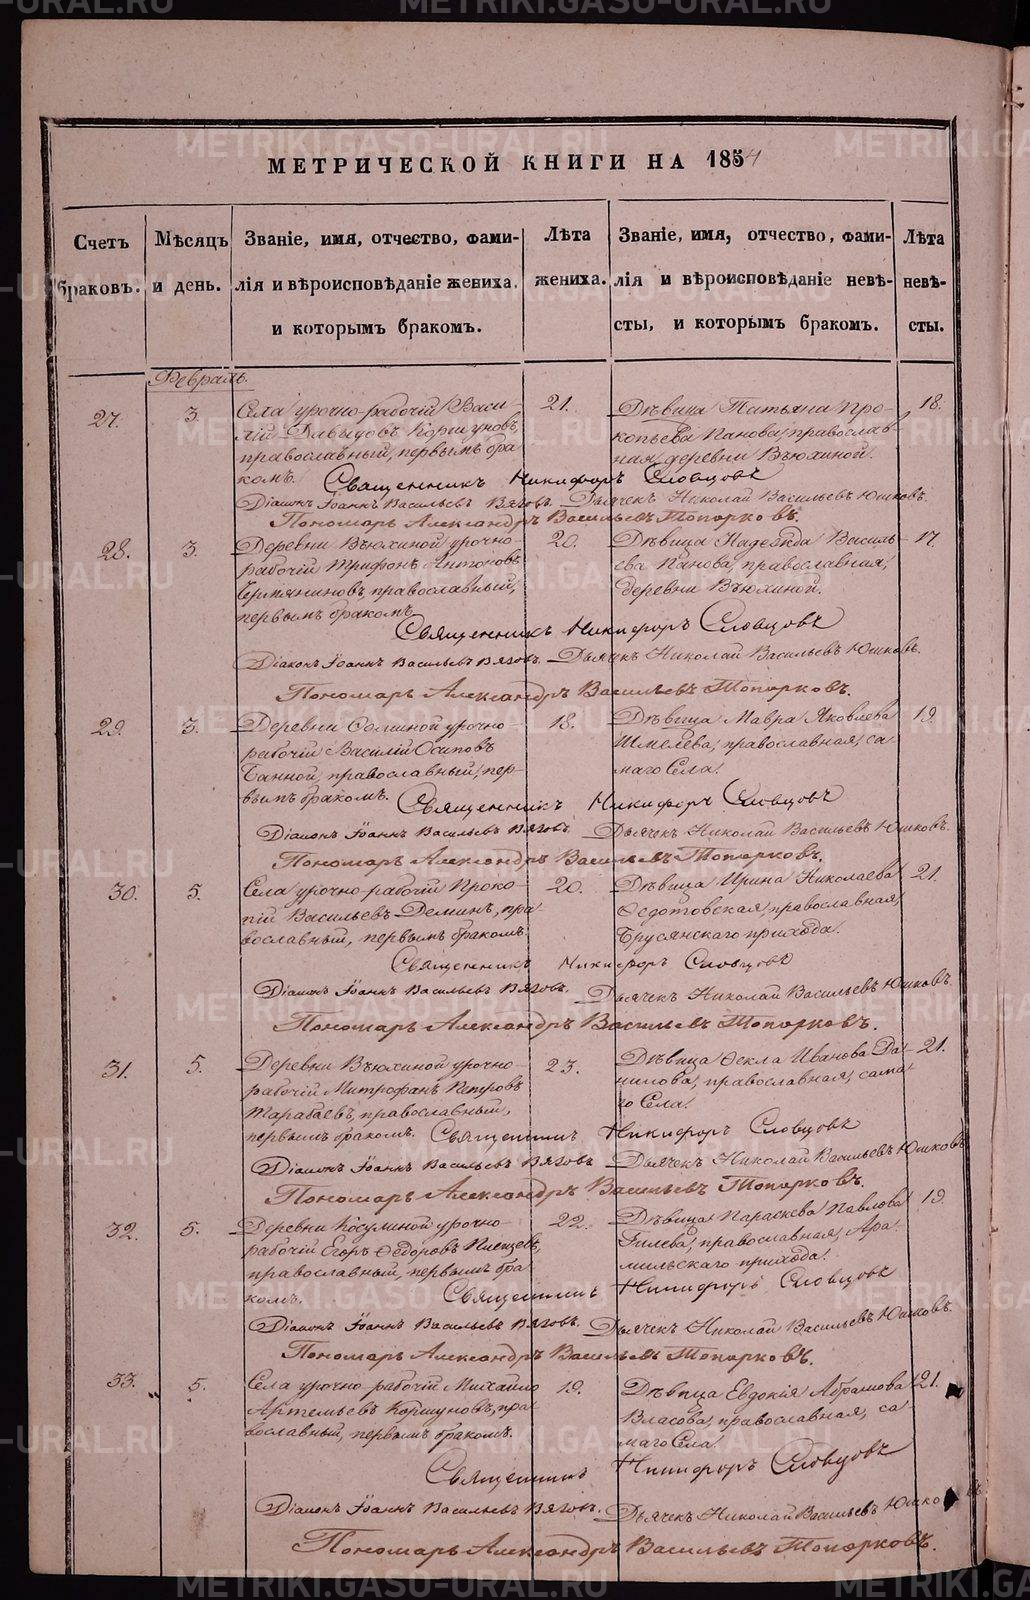 МЕТРИЧЕСКОЙ КНИГИ НА 1854
Счетъ браковъ.
Мѣсяцъ и день.
Званіе, имя, отчество, фами-
лія и вѣроисповѣданіе жениха,
и которымъ бракомъ.
Лѣта жениха.
Званіе, имя, отчество, фами-
лія и вѣроисповѣданіе невѣ-
сты, и которымъ бракомъ.
Лѣта невѣ-
сты.
Февраль.
27. 3. Села урочно-рабочій Васи- 21. Дѣвица Татьяна Про- 18.
лій Давыдовъ Коршуновъ, копьева Панова, православ-
православный, первымъ бра- ная, деревни Вьюхиной.
комъ. Священникъ Никифоръ Словцовъ
Діаконъ Іоаннъ Васильевъ Вяговъ. Дьячекъ Николай Васильевъ Юшковъ.
Пономарь Александръ Васильевъ Топорковъ.
28. 3. Деревни Вьюхиной урочно- 20. Дѣвица Надежда Василь- 17.
рабочій Трифонъ Антоновъ ева Панова, православная,
православный, деревни Вьюхиной.
первымъ бракомъ
Священникъ Никифоръ Словцовъ
Діаконъ Іоаннъ Васильевъ Вяговъ. Дьячекъ Николай Васильевъ Юшковъ.
Пономарь Александръ Васильевъ Топорковъ.
29. 3. Деревни урочно- 18. Дѣвица Мавра Яковлева 19.
рабочій Василій Осиповъ Шмелева, православная, са-
Банной, православный, пер- маго Села.
вымъ бракомъ. Священникъ Никифоръ Словцовъ
Діаконъ Іоаннъ Васильевъ Вяговъ. Дьячекъ Николай Васильевъ Юшковъ.
Пономарь Александръ Васильевъ Топорковъ.
30. 5. Села урочно-рабочій Проко- 20. Дѣвица Ирина Николаева 21.
пій Васильевъ Деминъ, пра- Ѳедотовская, православная,
вославный, первымъ бракомъ Брусянскаго прихода.
Священникъ Никифоръ Словцовъ
Діаконъ Іоаннъ Васильевъ Вяговъ. Дьячекъ Николай Васильевъ Юшковъ.
Пономарь Александръ Васильевъ Топорковъ.
31. 5. Деревни Вьюхиной урочно- 23. Дѣвица Ѳекла Иванова Да- 21.
рабочій Митрофанъ Петровъ нилова, православная, сама-
Тарабаевъ, православный, го Села.
первымъ бракомъ. Священникъ Никифоръ Словцовъ
Діаконъ Іоаннъ Васильевъ Вяговъ Дьячекъ Николай Васильевъ Юшковъ
Пономарь Александръ Васильевъ Топорковъ.
32. 5. Деревни Косулиной урочно- 22. Дѣвица Параскева Павлова 19.
рабочій Егоръ Ѳедоровъ Плещевъ, Гилева, православная, Ара-
православный, первымъ бра- мильскаго прихода.
комъ. Священникъ Никифоръ Словцовъ
Діаконъ Іоаннъ Васильевъ Вяговъ. Дьячекъ Николай Васильевъ Юшковъ.
Пономарь Александръ Васильевъ Топорковъ.
33. 5. Села урочно-рабочій Михайло 19. Дѣвица Евдокія Абрамова 21.
Артемьевъ Коршуновъ, пра- Власова, православная, са-
вославный, первымъ бракомъ. маго Села
Священникъ Никифоръ Словцовъ
Діаконъ Іоаннъ Васильевъ Вяговъ. Дьячекъ Николай Васильевъ Юшковъ
Пономарь Александръ Васильевъ Топорковъ.
METRIKI.GASO-URAL.RU